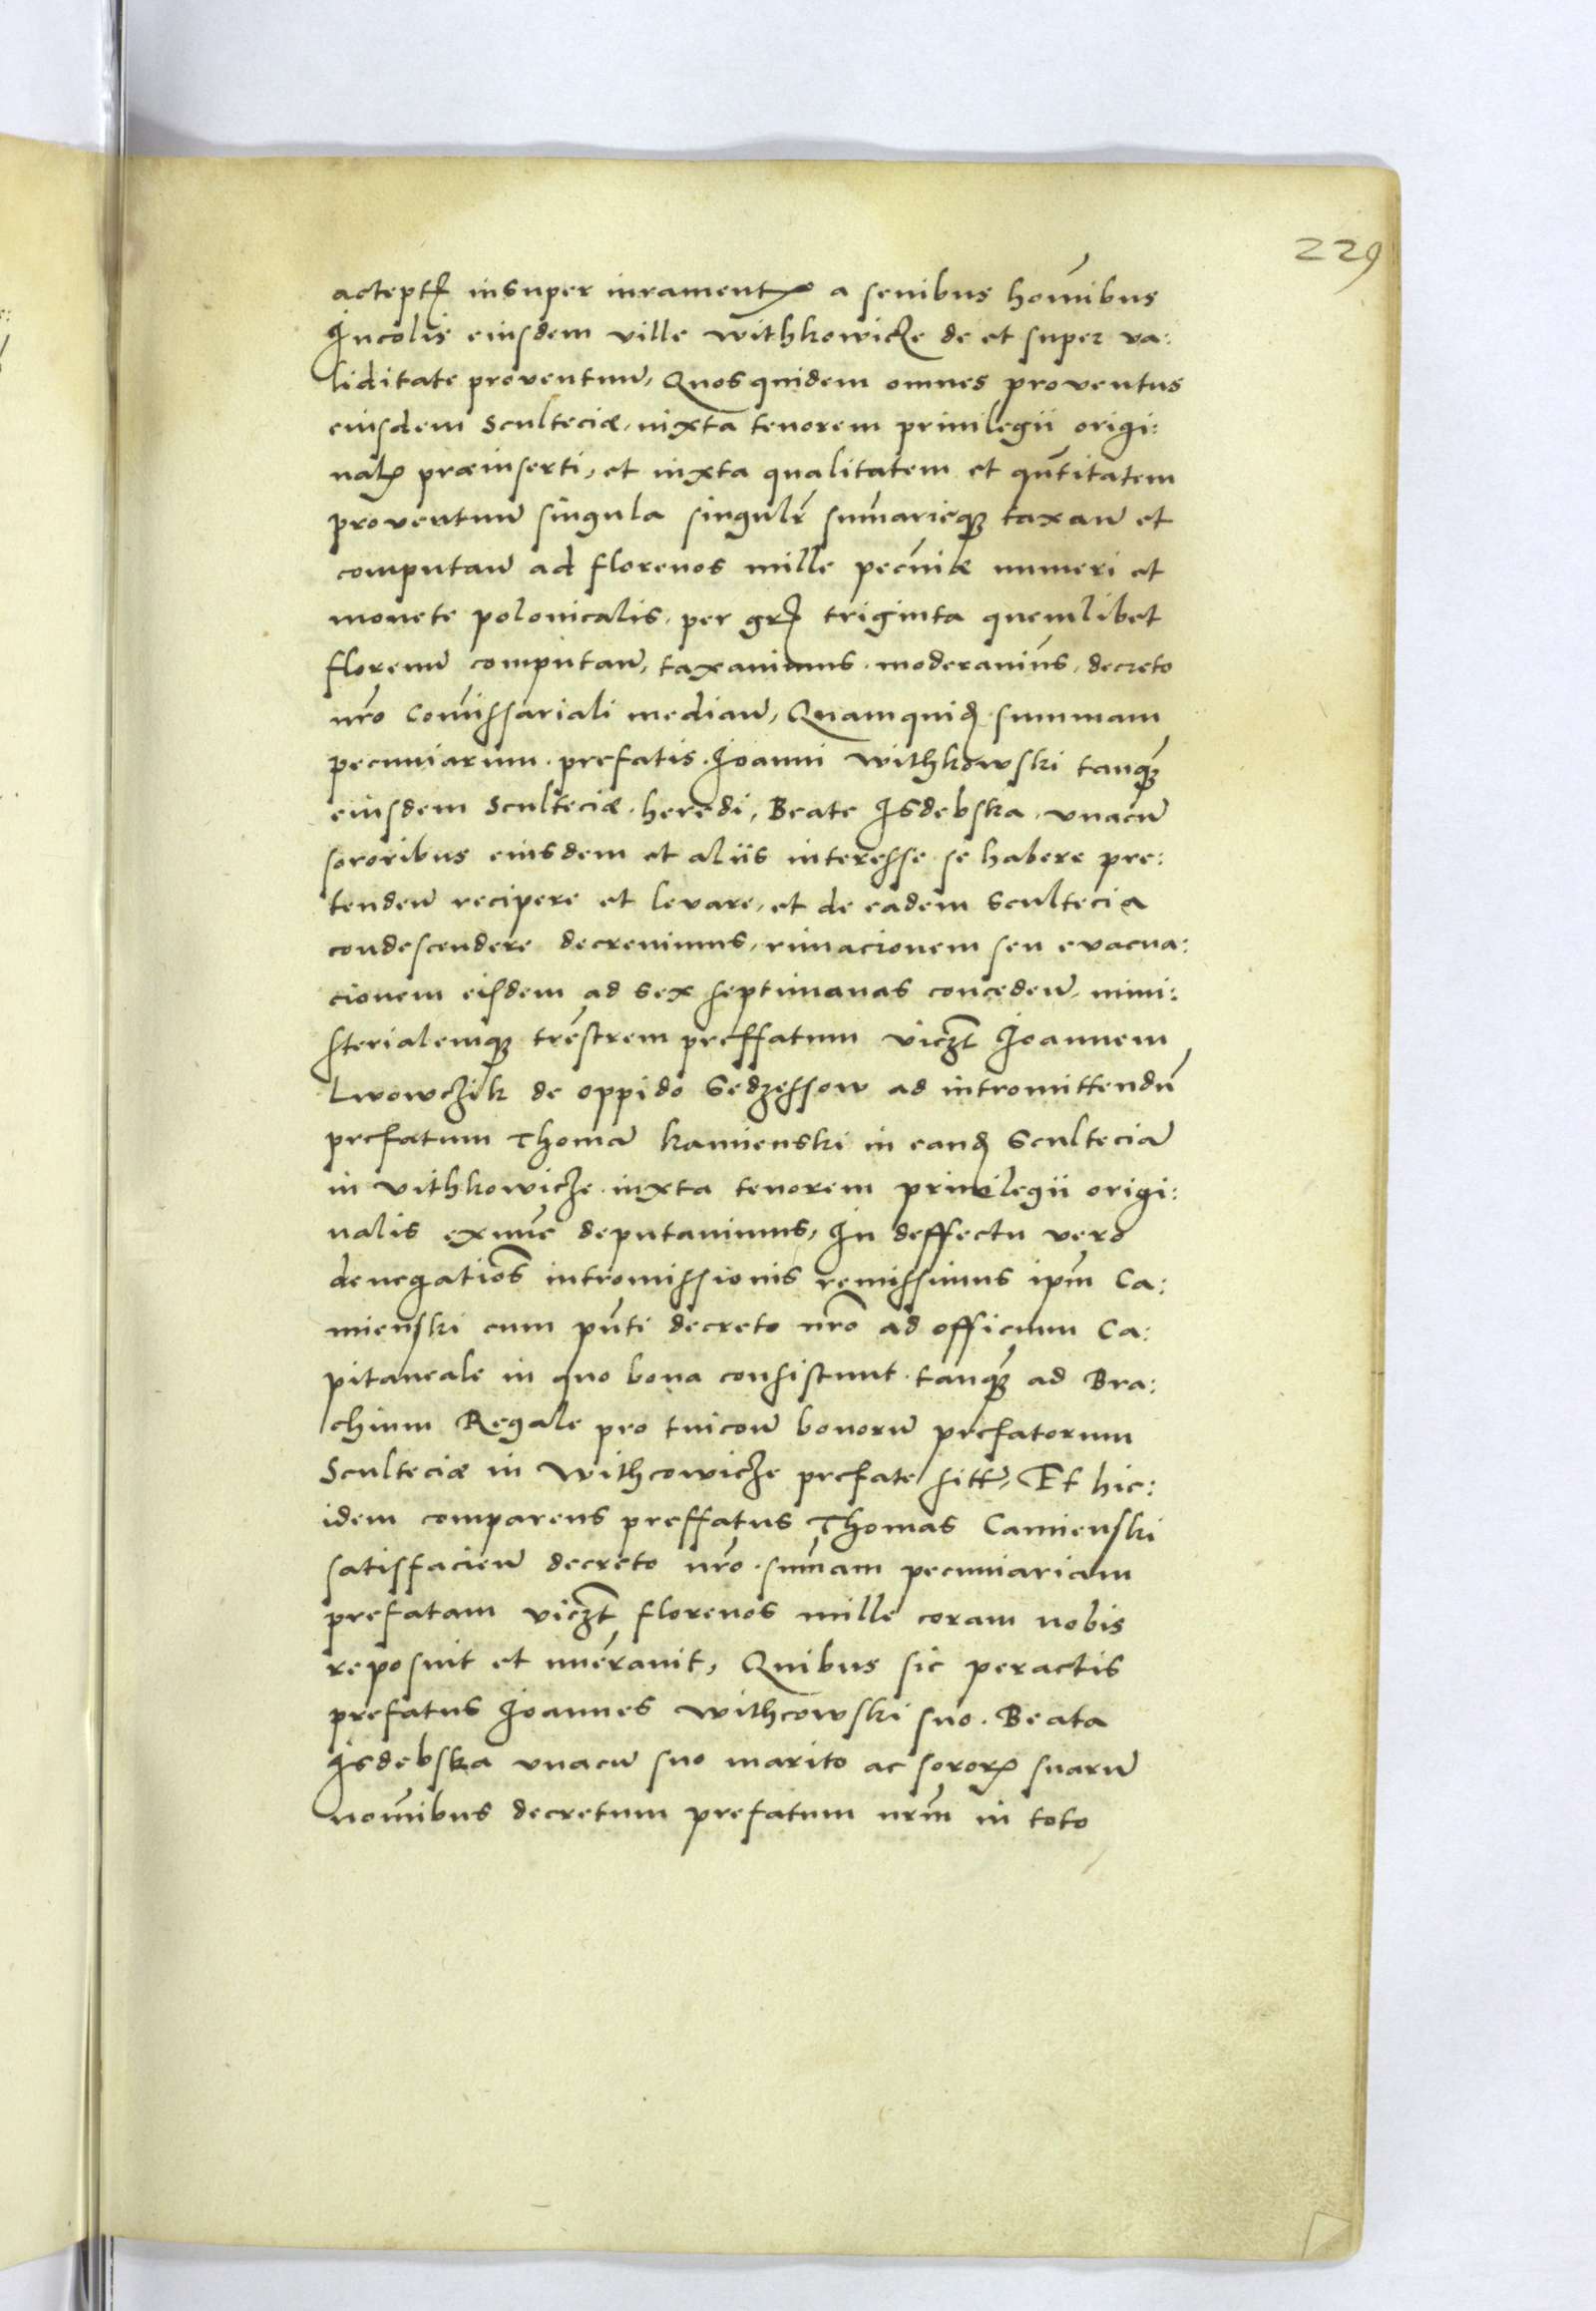 229
acceptꝭ insuper iuramentꝭ a senibus hoĩnibus
Incolis eiusdem ville Withkowicze de et super va:
liditate proventuũ, Quos quidem omnes proventus
eiusdem Sculteciæ, iuxta tenorem privilegii origi:
nalꝭ præinserti, et iuxta qualitatem et qũtitatem
proventuũ singula singulr̃ sum̃arieqꝫ taxañ et
computañ ad florenos mille pecũiæ numeri et
monete polonicalis, per grꝭ triginta quemlibet
florenũ computañ, taxavimus, moderavim̃s, decreto
nr̃o Com̃issariali mediañ, Quamquidꝭ summam
pecuniarum, prefatis, Ioanni Withkowski tanqꝫ
eiusdem Scultecie, heredi, Beate Isdebska, unacũ
sororibus eiusdem et aliis interesse se habere pre:
tendeñ recipere et levare, et de eadem Scultecia
condescendere decrevimus, rumacionem seu evacua:
cionem eisdem ad sex septimanas concedeñ, mini:
sterialemqꝫ trẽstrem preffatum viczt̃ Ioannem
Lwowczik de oppido Sedzessow ad intromittendũ
prefatum Thomã Kamienski in eandꝭ Sculteciã
in Vithkowicze, iuxta tenorem privilegii origi:
nalis exnũc deputavimus, In deffectu vero
denegatiõs intromissionis remissimus ipm̃ Ca:
mienski cum pñti decreto nr̃o ad officium Ca:
pitaneale in quo bona consistunt, tanqꝫ ad Bra:
chium Regale pro tuicoñe bonorũ prefatorum
Scultecie in Withcowicze prefate sitꝭ, Et hic:
idem comparens preffatus Thomas Camienski
satisfacieñ decreto nr̃o, sum̃am pecuniariam
prefatam viczt̃ florenos mille coram nobis
reposuit et nũeravit, Quibus sic peractis
prefatus Ioannes Withcowski suo, Beata
Isdebska unacũ suo marito ac sororꝭ suarũ
nom̃ibus decretum prefatum nrm̃ in toto